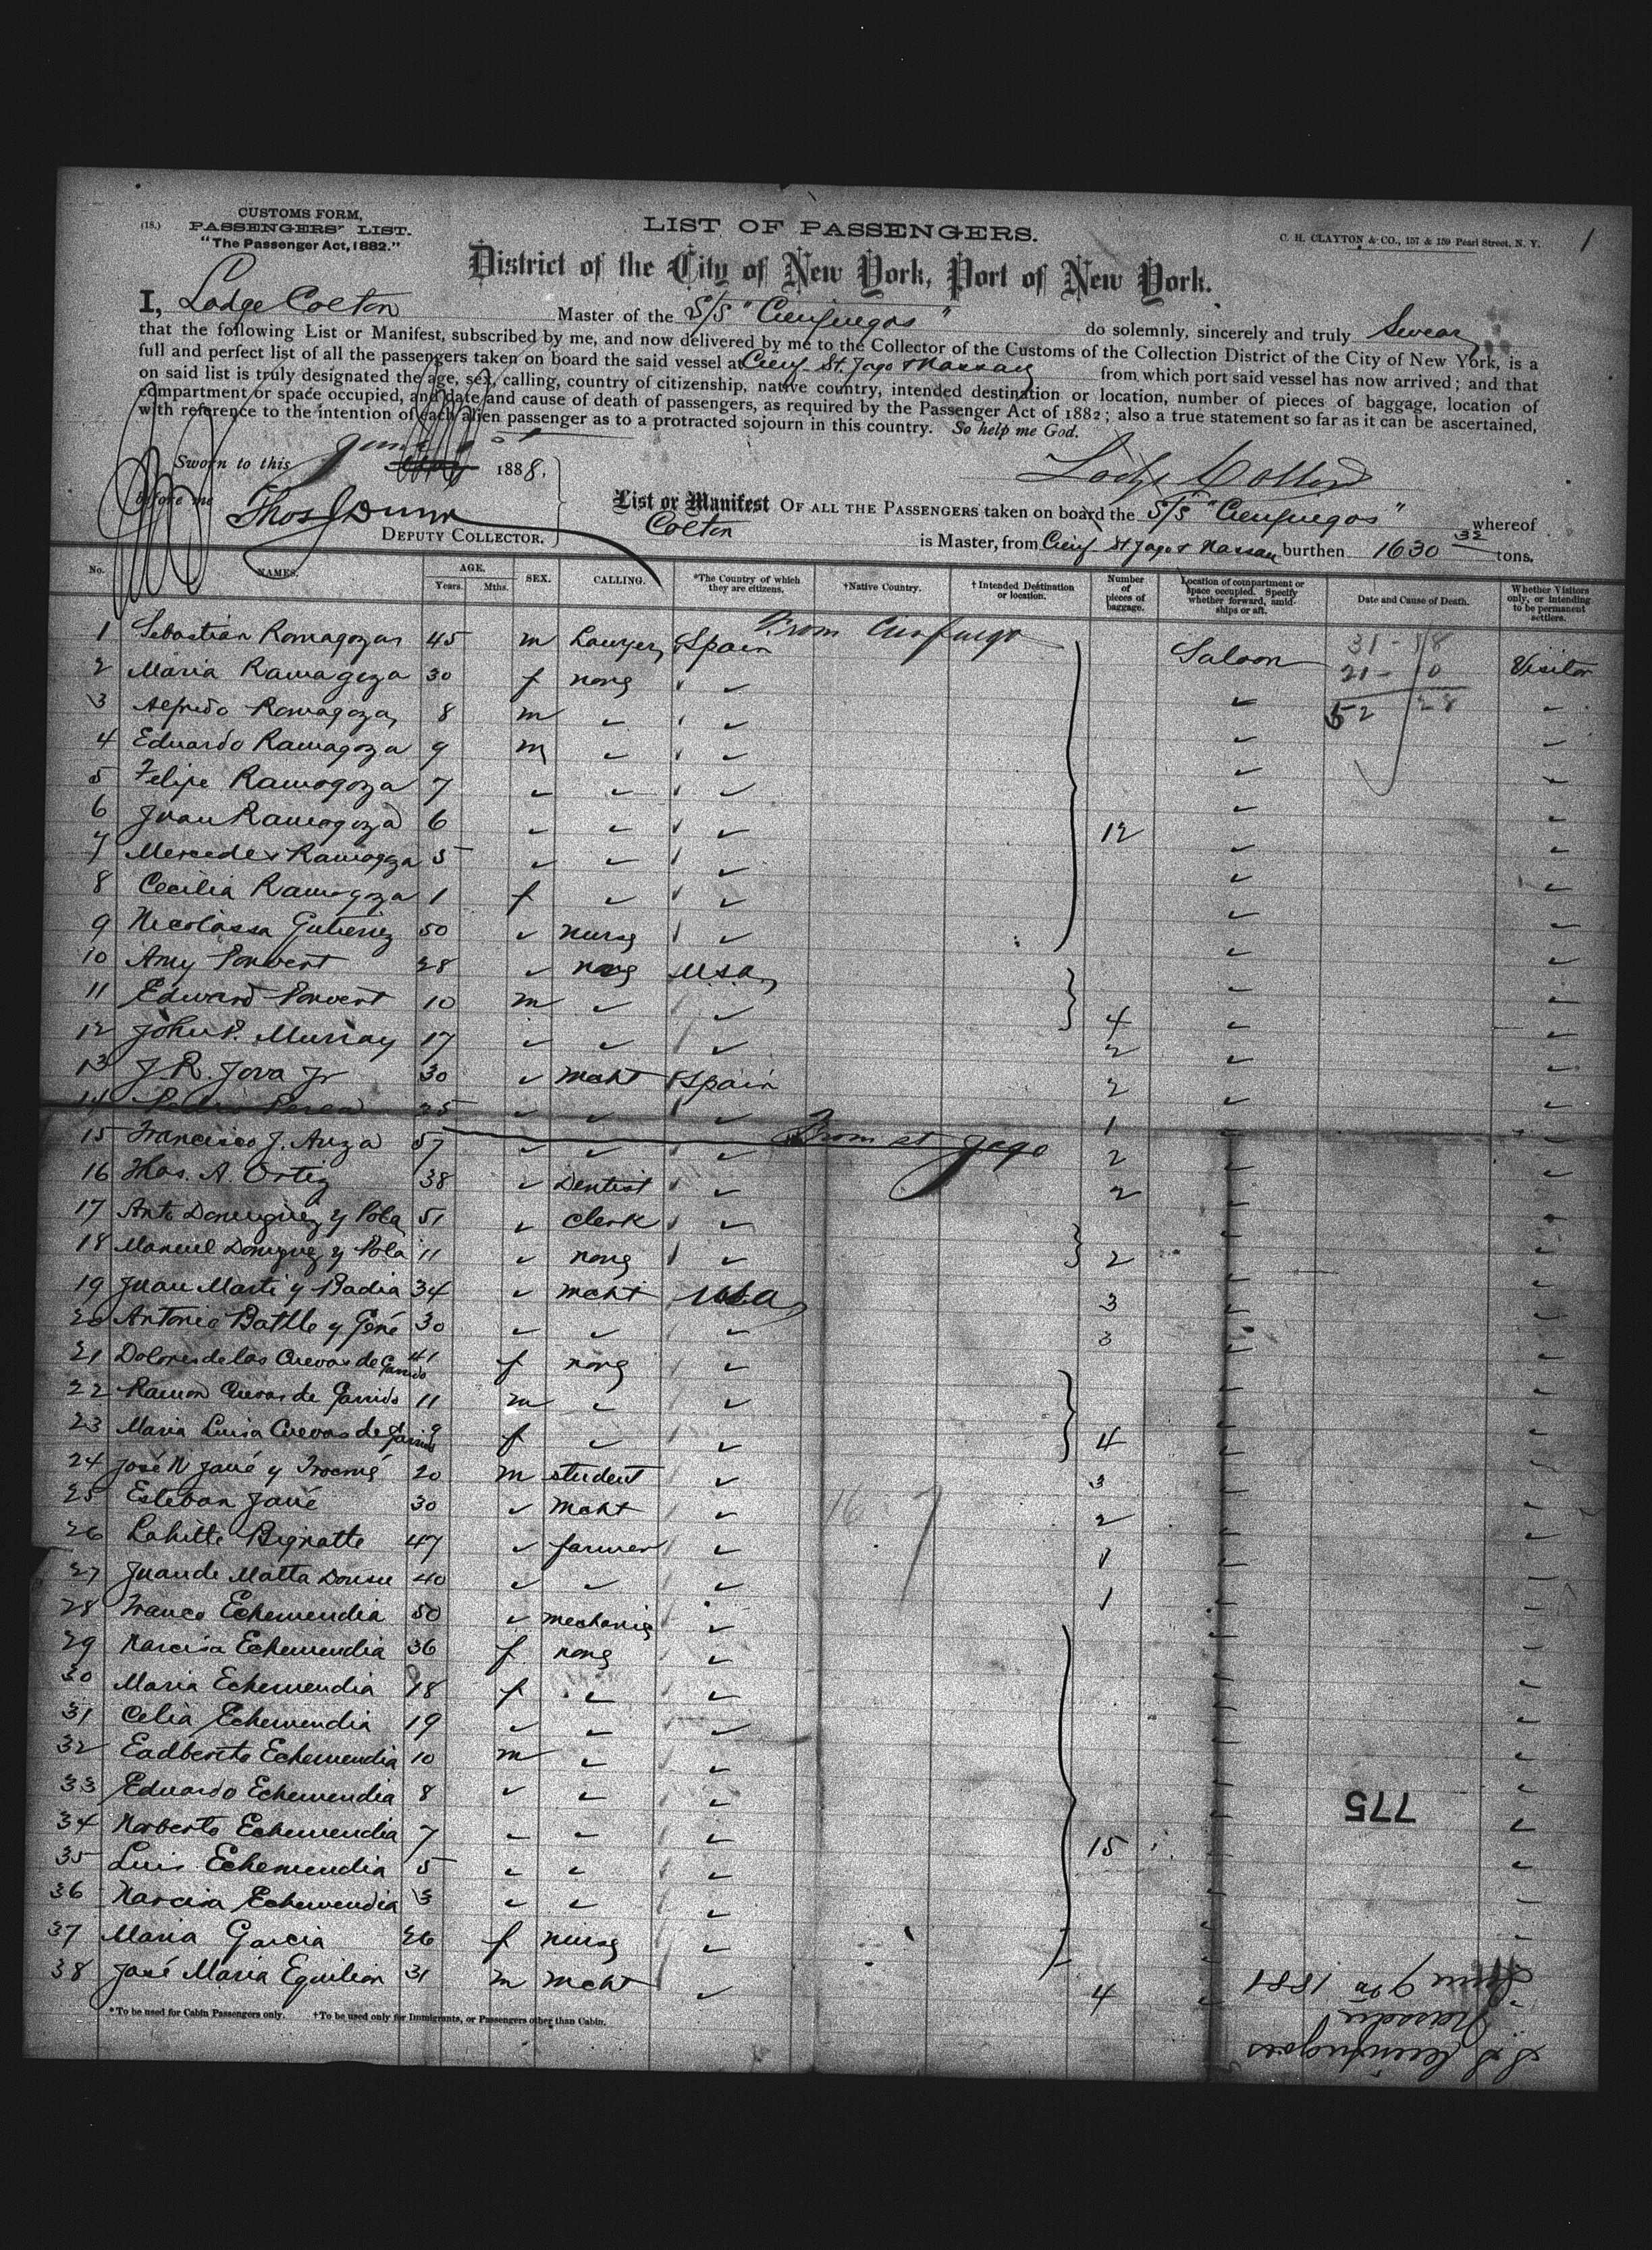 (18.)
CUSTOMS FORM,
PASSENGERS' LIST.
"The Passenger Act, 1882."
LIST OF PASSENGERS.
C. H. CLAYTON & CO., 157 & 159 Pearl Street, N. Y.
1
District of the City of New York, Port of New York.
I, Lodge Colton Master of the S/S "Cienfuegos" do solemnly, sincerely and truly Swear
that the following List or Manifest, subscribed by me, and now delivered by me to the Collector of the Customs of the Collection District of the City of New York, is a
full and perfect list of all the passengers taken on board the said vessel at Cienf St. Jago & Nassau from which port said vessel has now arrived; and that
on said list is truly designated the age, sex, calling, country of citizenship, native country, intended destination or location, number of pieces of baggage, location of
compartment or space occupied, and date and cause of death of passengers, as required by the Passenger Act of 1882; also a true statement so far as it can be ascertained,
with reference to the intention of each alien passenger as to a protracted sojourn in this country. So help me God.
Sworn to this June 1888.
Lodge Colton
before me Thos J Dunn
DEPUTY COLLECTOR.
List or Manifest OF ALL THE PASSENGERS taken on board the S/S "Cienfuegos" whereof
Colton is Master, from Cienf St Jago & Nassau burthen 1630 32 tons.
No. NAMES. AGE. Years. Mths. SEX. CALLING. *The Country of which they are citizens. †Native Country. †Intended Destination or location. Number of pieces of baggage. Location of compartment or space occupied. Specify whether forward, amidships or aft. Date and Cause of Death. Whether Visitors only, or intending to be permanent settlers.
From Cienfuego
1 Sebastian Romagozar 45 m Lawyer Spain Saloon Visitor
31 - 18
21 - 10
52 28
2 Maria Ramagoza 30 f none
3 Alfredo Romagoza 8 m
4 Eduardo Ramagoza 9 m
5 Felipe Ramogoza 7
6 Juan Ramagoza 6 12
7 Mercedes Ramagoza 5
8 Cecilia Ramagoza 1 f
9 Nicolassa Gutierriz 50 nurse
10 Amy Ponvert 28 none U.S.A.
11 Edward Ponvert 10 m 4
12 John P. Murray 17 2
13 J. R. Jova Jr 30 mcht Spain 2
14 Pedro Perea 25 1
From St Jago
15 Francisco J. Auza 57 2
16 Thos. A. Ortiz 38 Dentist 2
17 Anto Dominguez y Pola 51 clerk
18 Manuel Domguez y Pola 11 none 2
19 Juan Marti y Badia 34 mcht USA 3
20 Antonio Batlle y Gené 30 3
21 Dolores de las Cuevas de Garrido 41 f none
22 Ramon Cuevas de Garrido 11 m
23 Maria Luisa Cuevas de Garrido 9 f 4
24 José N Jané y 20 m student 3
25 Esteban Jané 30 mcht 2
26 Lahitte Bignotte 47 farmer 1
27 Juan de Matta 40 1
28 Franco Echemendia 50 mechanic
29 Narcisa Echemendia 36 f none
30 Maria Echemendia 18 f
31 Celia Echemendia 19
32 Eadberto Echemendia 10 m
33 Eduardo Echemendia 8
34 Norberto Echemendia 7 15
35 Luis Echemendia 5
36 Narcisa Echemendia 3
37 Maria Garcia 26 f nurse
38 José Maria Eguilior 31 m mcht 4
775
S S Cienfuegos
Nassau
*To be used for Cabin Passengers only. †To be used only for Immigrants, or Passengers other than Cabin.